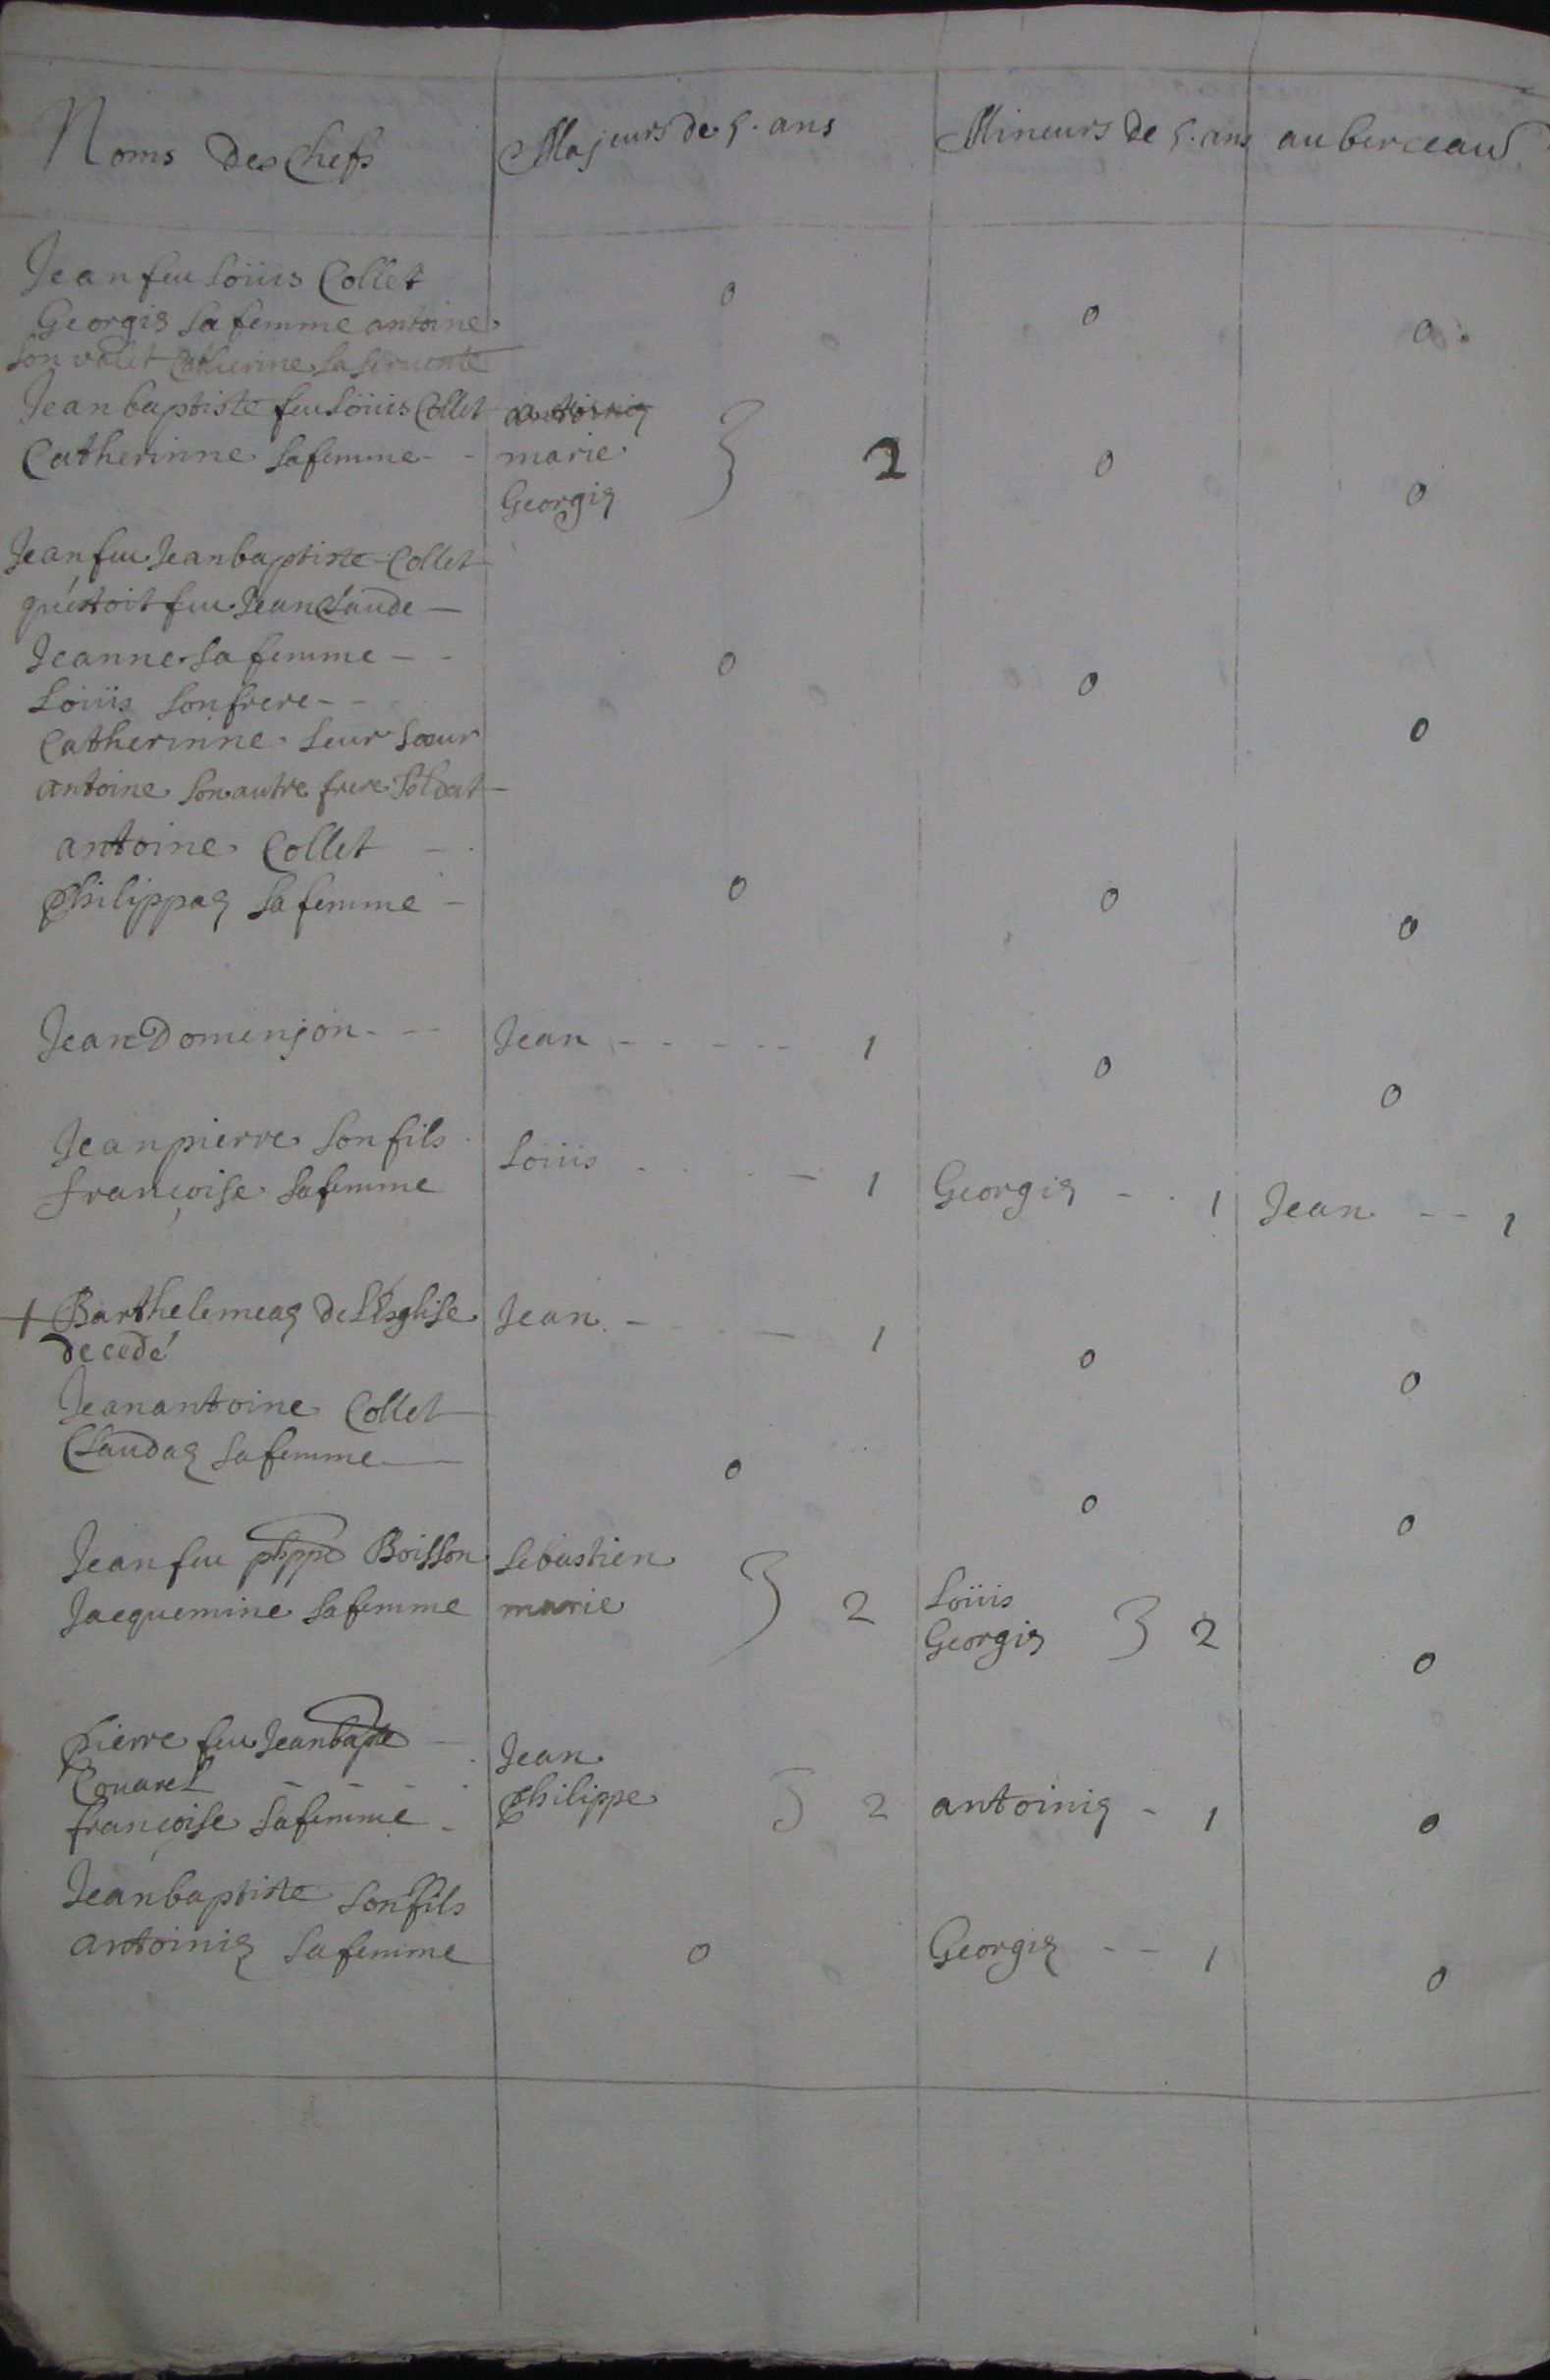 Noms Des Chefs Majeurs de 5. ans Mineurs de 5. ans au berceau
Jean feu Loüis Collet
Georgis Sa femme antoine 0 0 0
Son valet Catherine Sa Servente
Jean baptiste feu Loüis Collet antoinia
Catherinne Sa femme - - marie } 2 0 0
Georgia
Jean feu Jean baptiste Collet
qu'estoit feu Jean Claude —
Jeanne Sa femme - - 0 0 0
Loüis Son frere - -
Catherinne Leur Sœur
antoine Son autre frere Soldat —
antoine Collet —
Philippaz Sa femme — 0 0 0
Jean Domenjon - - - Jean - - - - - 1 0 0
Jean pierre Son fils Loüis - 1 Georgia - - 1 Jean - - 1
françoise Sa femme
+ Barthelemeaz De L'Esglise Jean - — 1 0 0
decedé
Jean antoine Collet
Claudaz Sa femme — 0 0 0
Jean feu phippe Boisson Sebastien } 2 Loüis } 2 0
Jacquemine Sa femme marie Georgia
Pierre feu Jean bapte — Jean
Couarel - - - Philippe } 2 antoinia - 1 0
françoise Sa femme -
Jean baptiste Son fils
antoinia Sa femme 0 Georgia - - 1 0